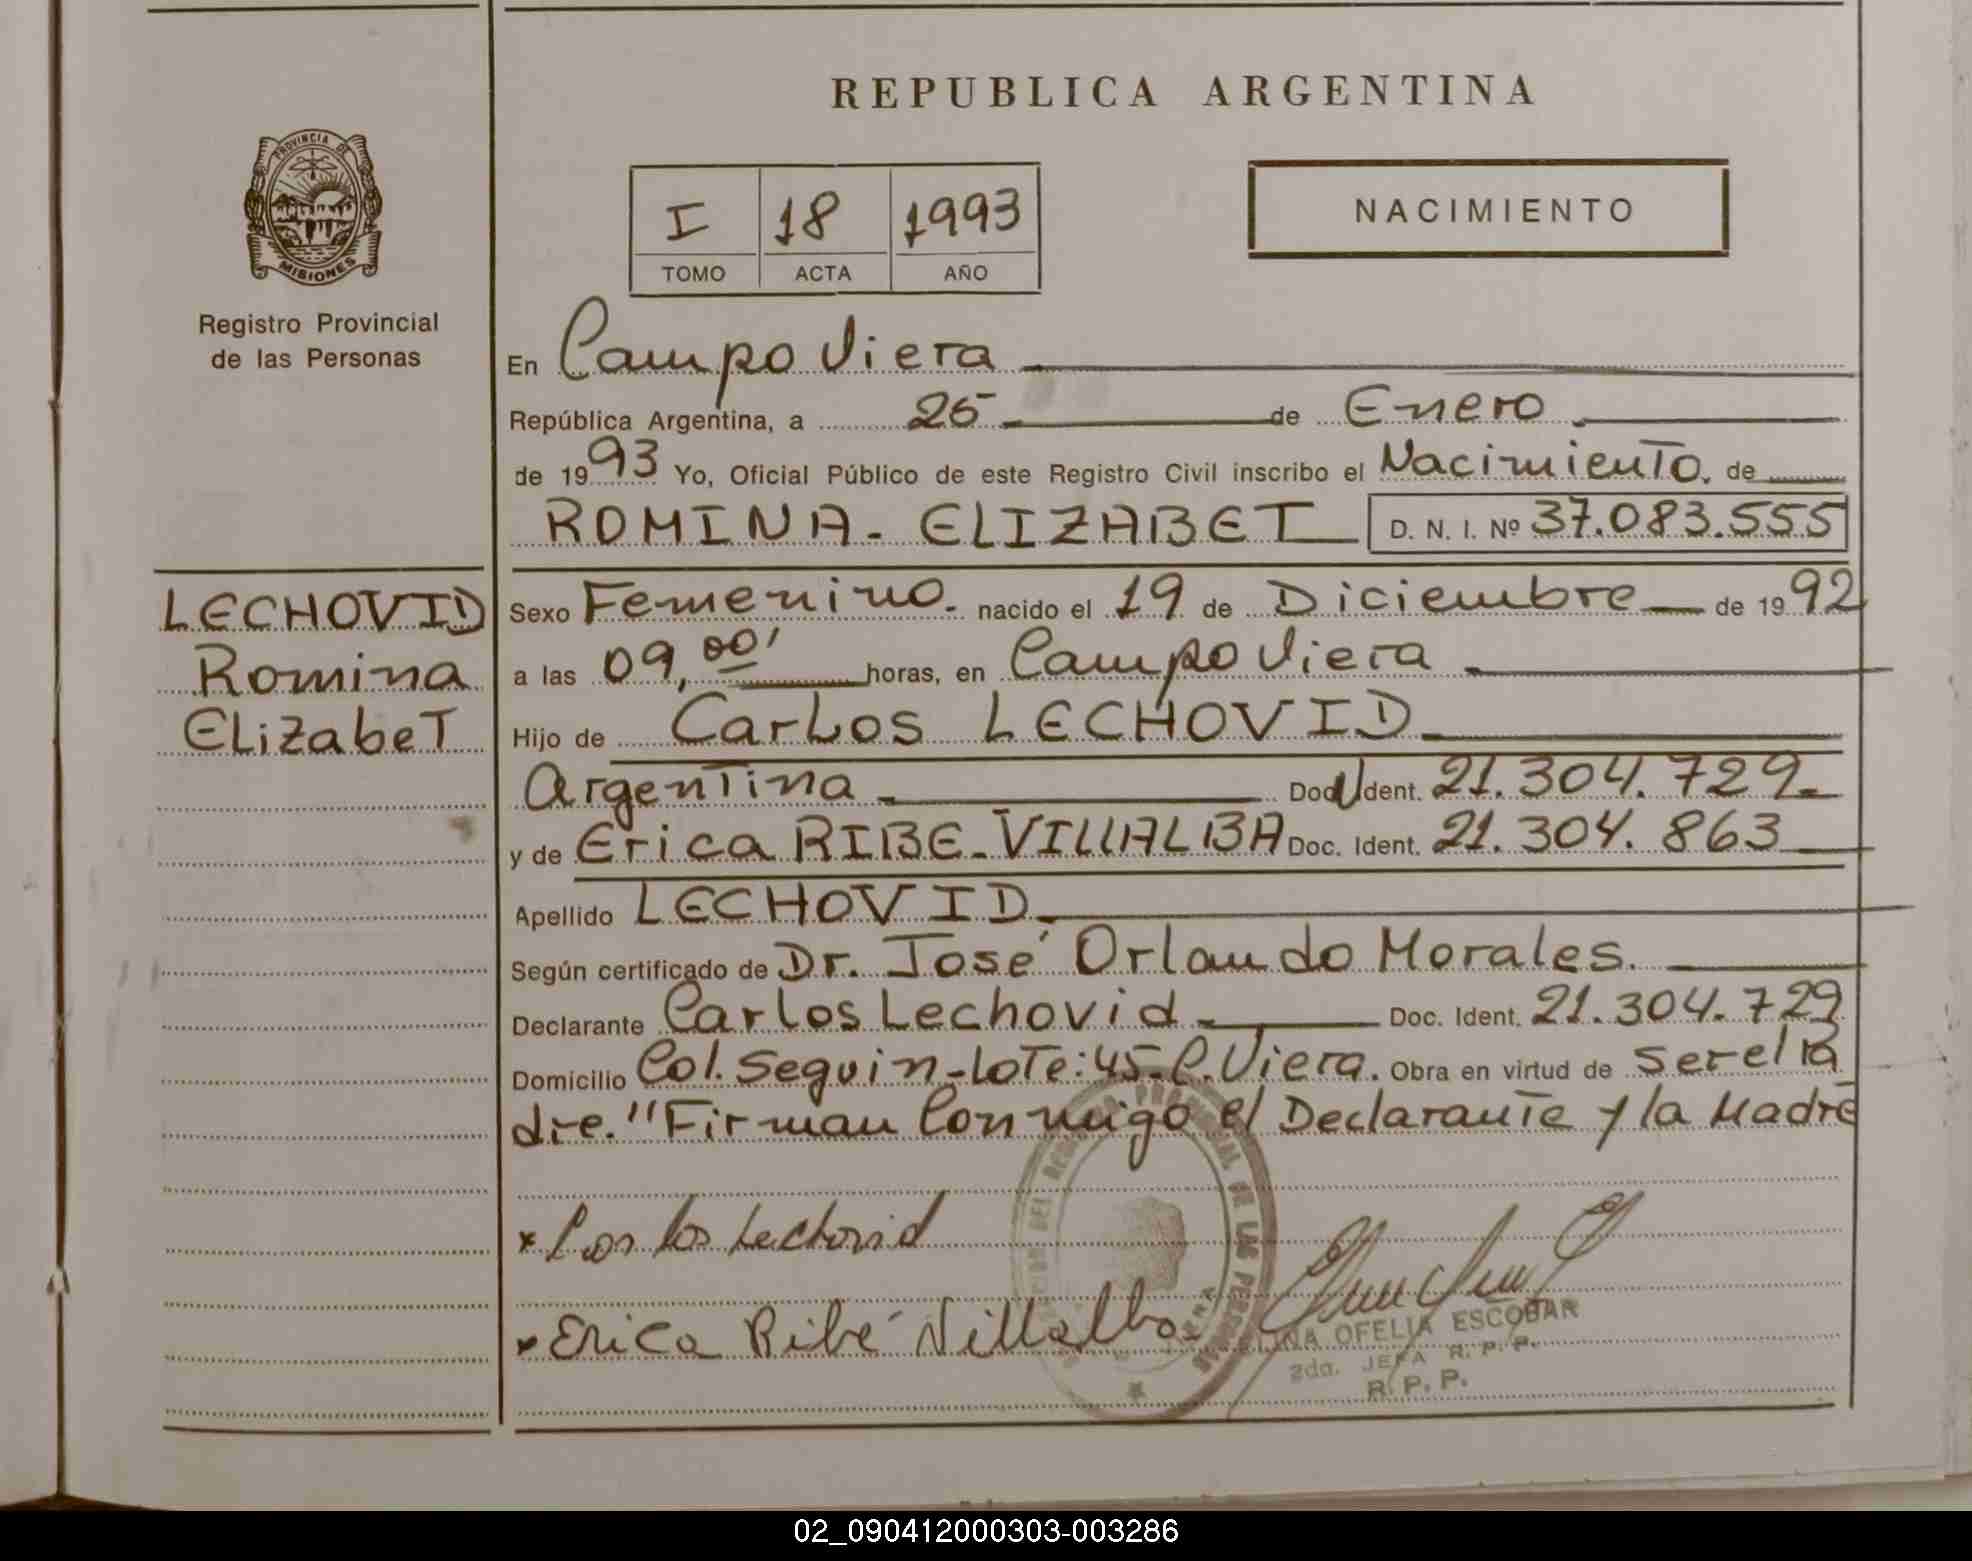 REPUBLICA ARGENTINA
PROVINCIA DE
MISIONES
Registro Provincial
de las Personas
I 18 1993
TOMO ACTA AÑO
NACIMIENTO
En Campo Viera
República Argentina, a 25 de Enero
de 1993 Yo, Oficial Público de este Registro Civil inscribo el Nacimiento. de
ROMINA - ELIZABET D. N. I. Nº 37.083.555
LECHOVID
Romina
ElizabeT
Sexo Femenino. nacido el 19 de Diciembre de 1992
a las 09,00' horas, en Campo Viera
Hijo de Carlos LECHOVID
Argentina Doc. Ident. 21.304.729
y de Erica RIBE - VILLALBA Doc. Ident. 21.304.863
Apellido LECHOVID
Según certificado de Dr. José Orlando Morales.
Declarante Carlos Lechovid Doc. Ident. 21.304.729
Domicilio Col. Seguin - Lote: 45 - C. Viera. Obra en virtud de ser el Pa
dre. "Firman Conmigo el Declarante y la Madre
x Carlos Lechovid
x Erica Ribé Villalba
OFELIA ESCOBAR
2da. JEFA R. P. P.
R. P. P.
02_090412000303-003286